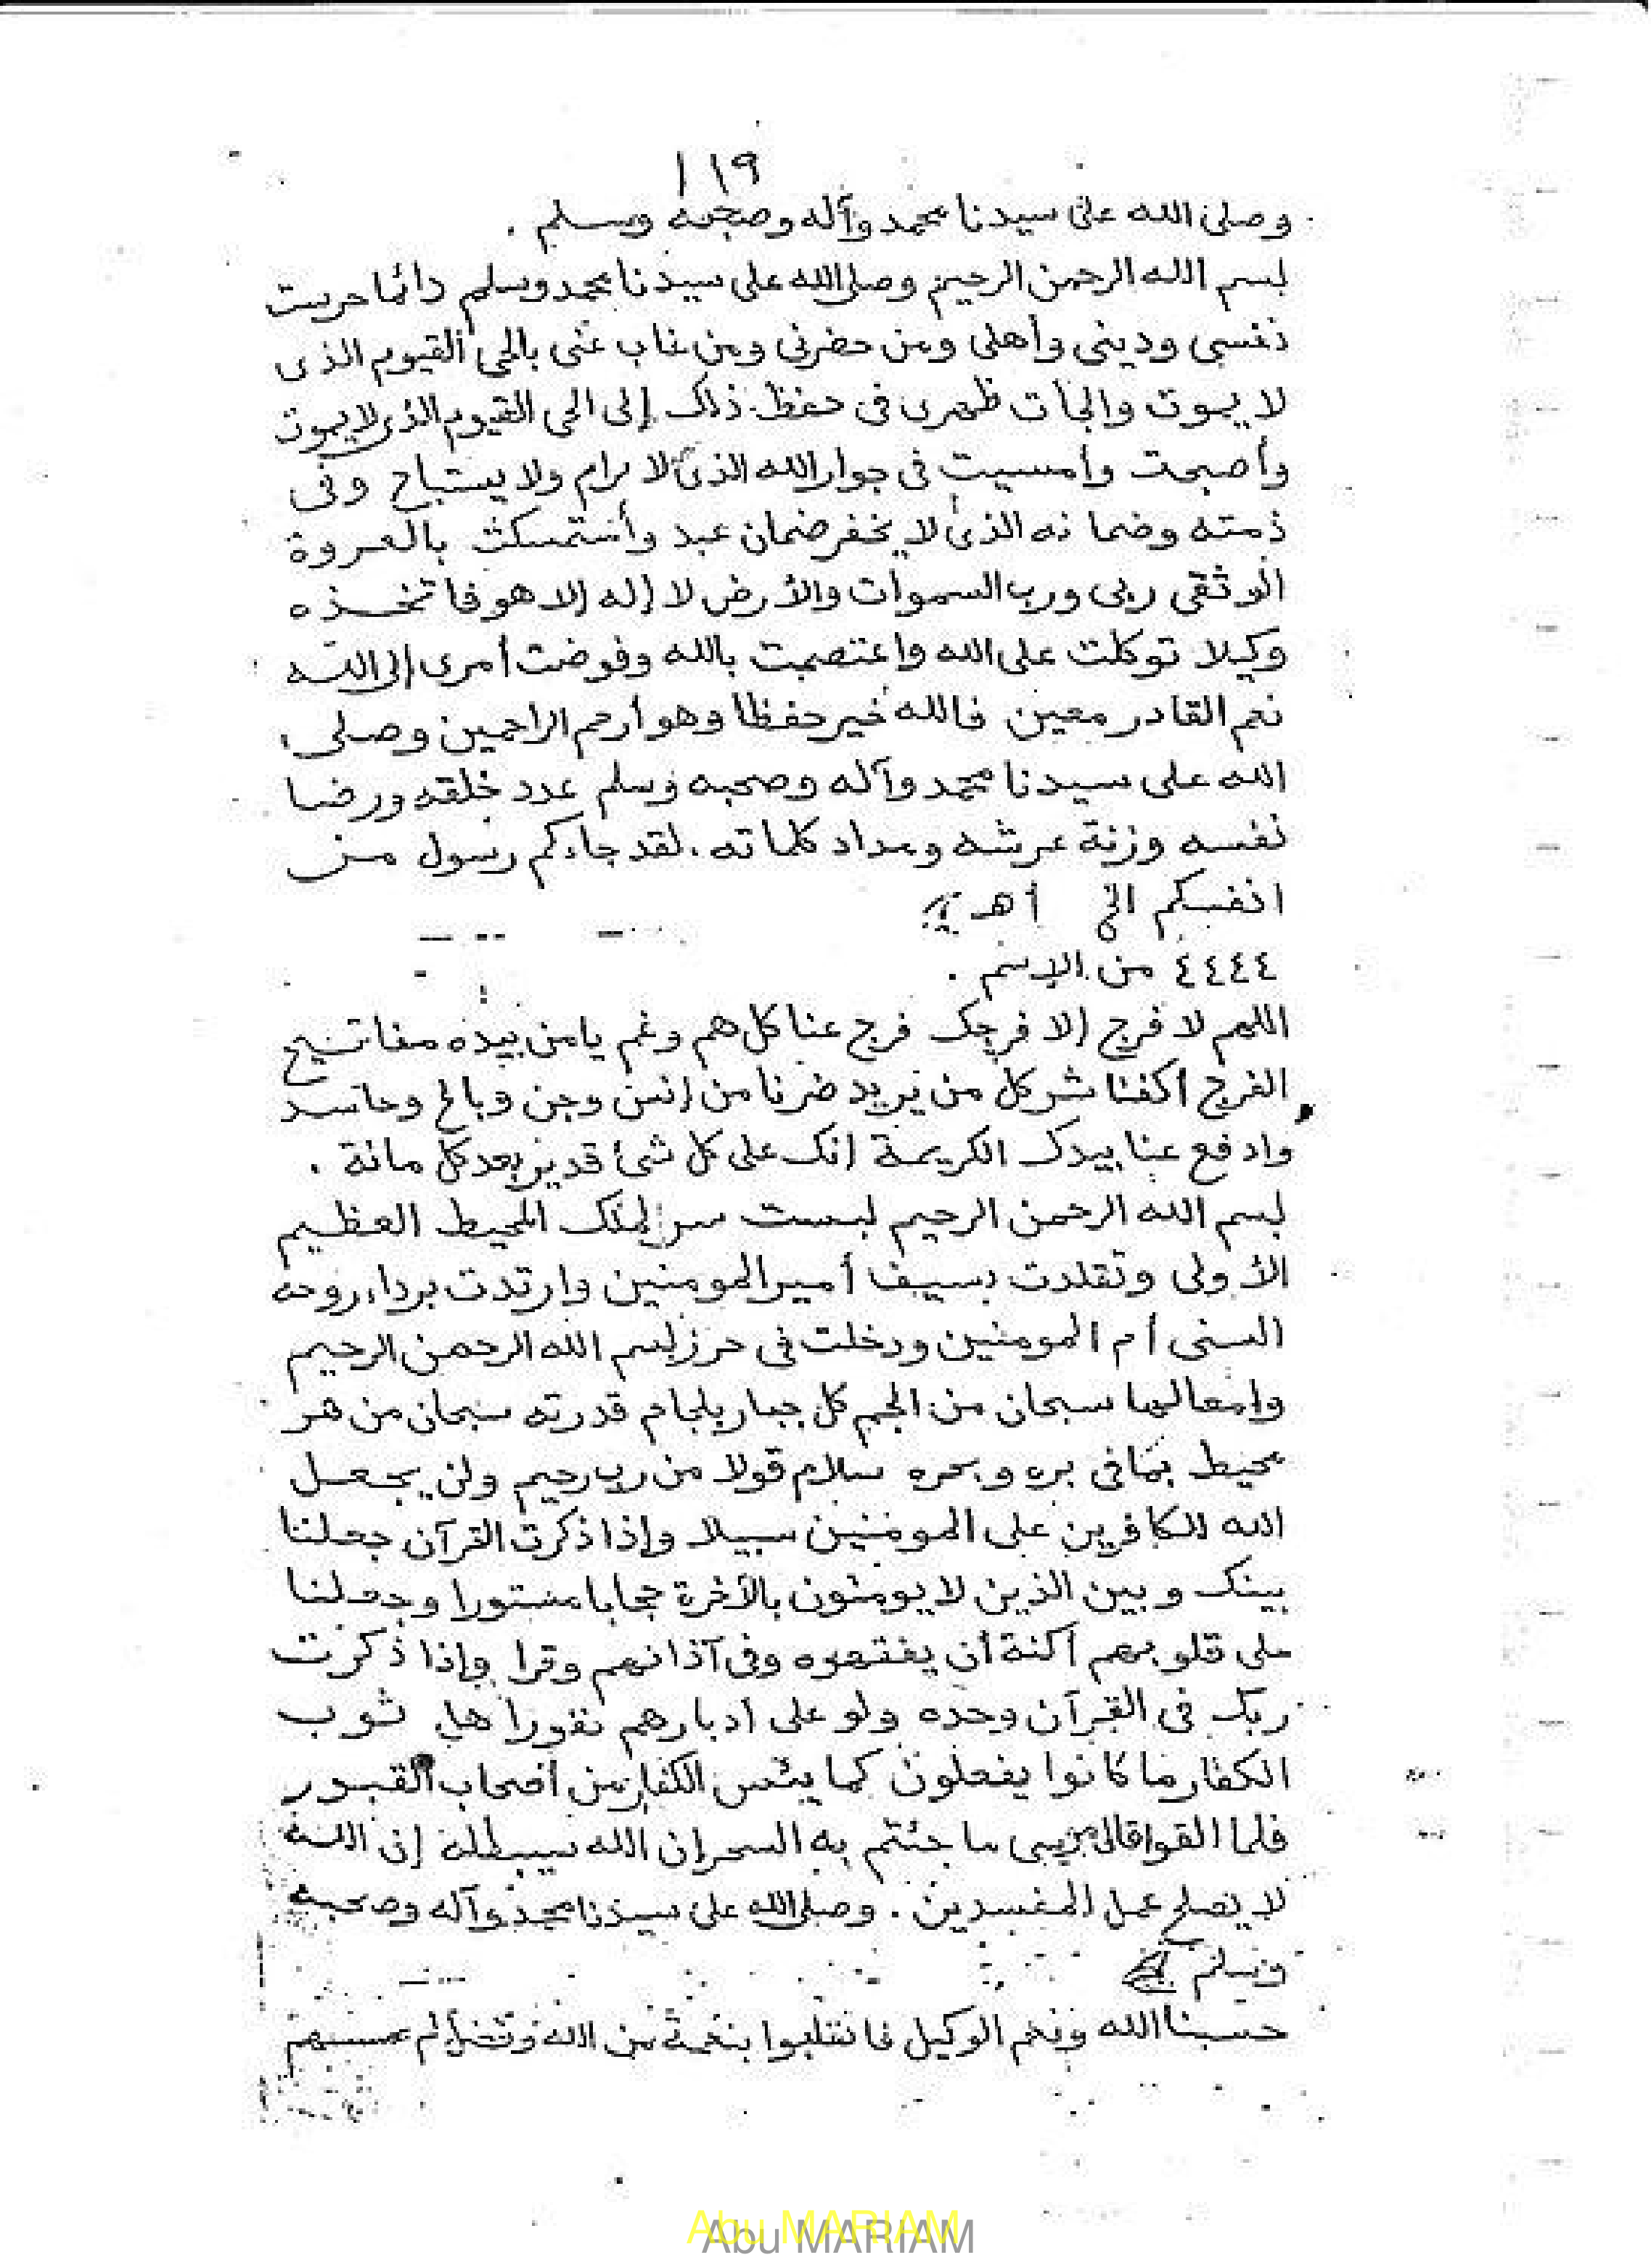 ١١٩
وصلى الله على سيدنا محمد وآله وصحبه وسلم .
بسم الله الرحمن الرحيم وصلى الله على سيدنا محمد وسلم دائما حرست
نفسي وديني وأهلى ومن حضرني ومن غاب عنى بالحى القيوم الذى
لا يموت وألجأت ظهرى فى حفظ ذلك إلى الحى القيوم الذى لا يموت
وأصبحت وأمسيت فى جوار الله الذى لا يرام ولا يستباح وفى
ذمته وضمانه الذى لا يخفر ضمان عبد وأستمسكت بالعروة
الوثقى ربى ورب السموات والأرض لا إله إلا هو فاتخذه
وكيلا توكلت على الله واعتصمت بالله وفوضت أمرى إلى الله
نعم القادر معين فالله خير حفظا وهو أرحم الراحمين وصلى
الله على سيدنا محمد وآله وصحبه وسلم عدد خلقه ورضا
نفسه وزنة عرشه ومداد كلماته . لقد جاءكم رسول من
انفسكم الخ أهـ
٤٤٤٤ من الإسم .
اللهم لا فرج إلا فرجك فرج عنا كل هم وغم يا من بيده مفاتيح
الفرج أكفنا شر كل من يريد ضرنا من إنس وجن وباغ وحاسد
وادفع عنا بيدك الكريمة إنك على كل شئ قدير بعد كل مائة .
بسم الله الرحمن الرحيم لبست سر الملك المحيط العظيم
الأولى وتقلدت بسيف أمير المومنين وارتدت برداء روحه
السنى أم المومنين ودخلت فى حرز بسم الله الرحمن الرحيم
سبحان من الجم كل جبار بلجام قدرته سبحان من هو
محيط بما فى بره وبحره سلام قولا من رب رحيم ولن يجعل
الله للكافرين على المومنين سبيلا وإذا ذكرت القرآن جعلنا
بينك وبين الذين لا يومنون بالآخرة حجابا مستورا وجعلنا
على قلوبهم أكنة أن يفقهوه وفى آذانهم وقرا وإذا ذكرت
ربك فى القرآن وحده ولو على أدبارهم نفورا هل ثوب
الكفار ما كانوا يفعلون كما يئس الكفار من أصحاب القبور
فلما القوا قال موسى ما جئتم به السحر إن الله سيبطله إن الله
لا يصلح عمل المفسدين . وصلى الله على سيدنا محمد وآله وصحبه
وسلم
حسبنا الله ونعم الوكيل فانقلبوا بنعمة من الله وفضل لم يمسسهم
Abu MARIAM